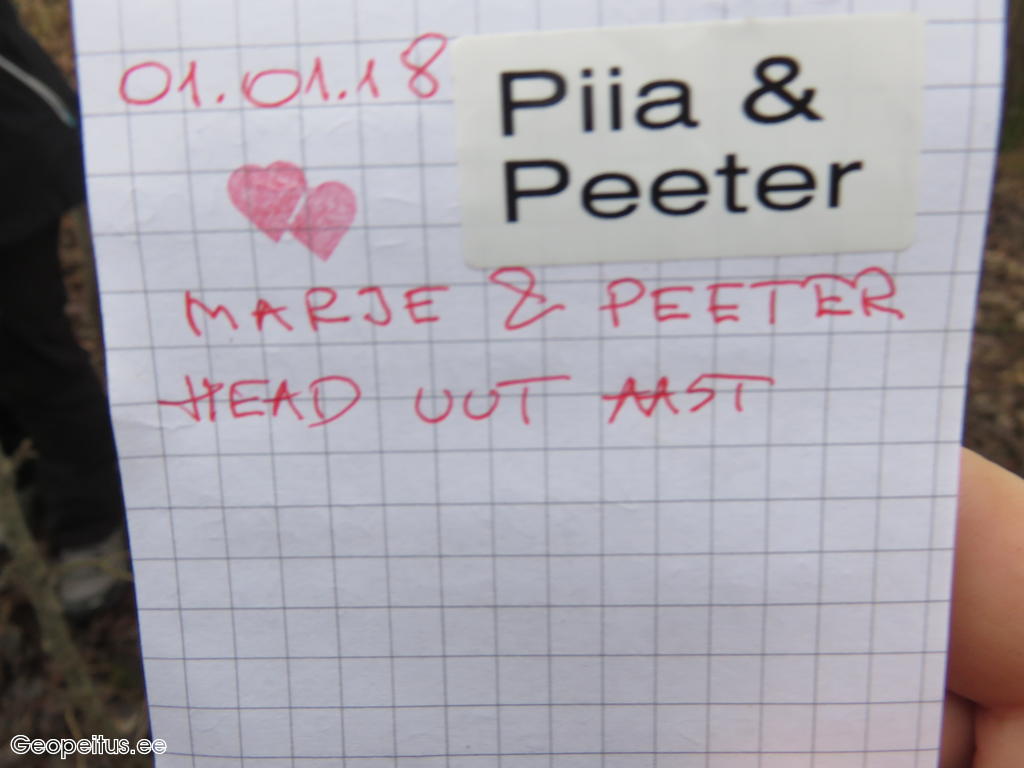 01.01.18
Piia &
Peeter
MARJE & PEETER
HEAD UUT AAST
Geopeitus.ee